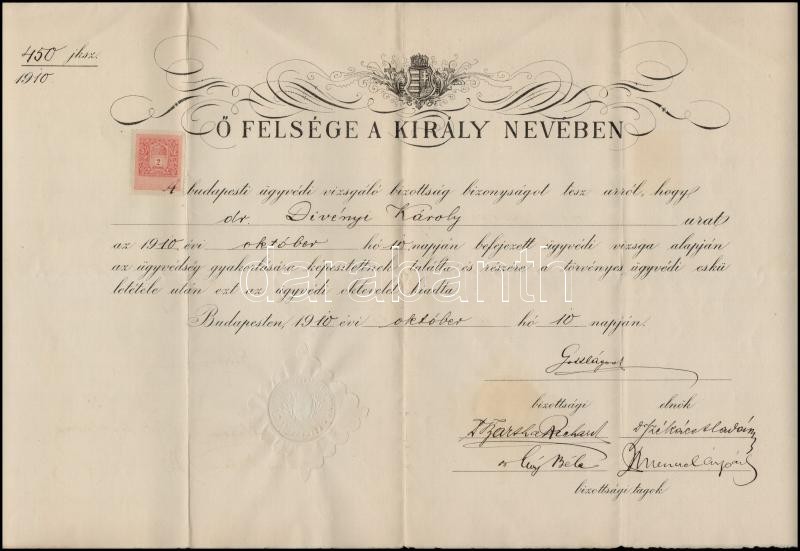 450 jksz.
1910
Ő FELSÉGE A KIRÁLY NEVÉBEN
2
A budapesti ügyvédi vizsgáló bizottság bizonyságot tesz arról, hogy
dr. Divényi Károly urat
az 1910. évi október hó 10 napján befejezett ügyvédi vizsga alapján
az ügyvédség gyakorlására képesítettnek találta és részére a törvényes ügyvédi eskü
letétele után ezt az ügyvédi oklevelet kiadta
darabanth
Budapesten, 1910 évi október hó 10 napján.
bizottsági elnök
Dr Béla
bizottsági tagok